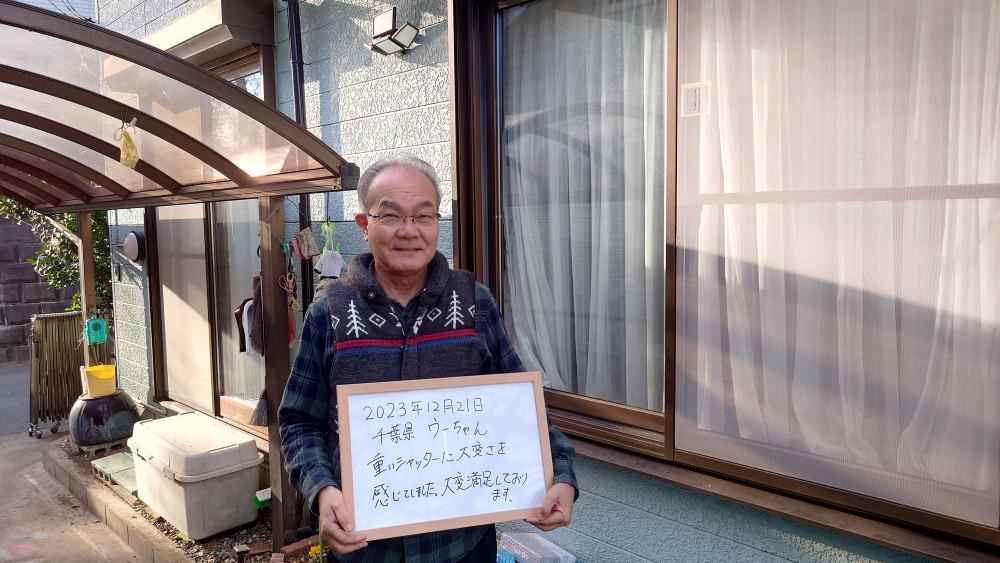 2023年12月21日
千葉県 ウーちゃん
重いシャッターに大変さを
感じてしました、大変満足しており
ます。